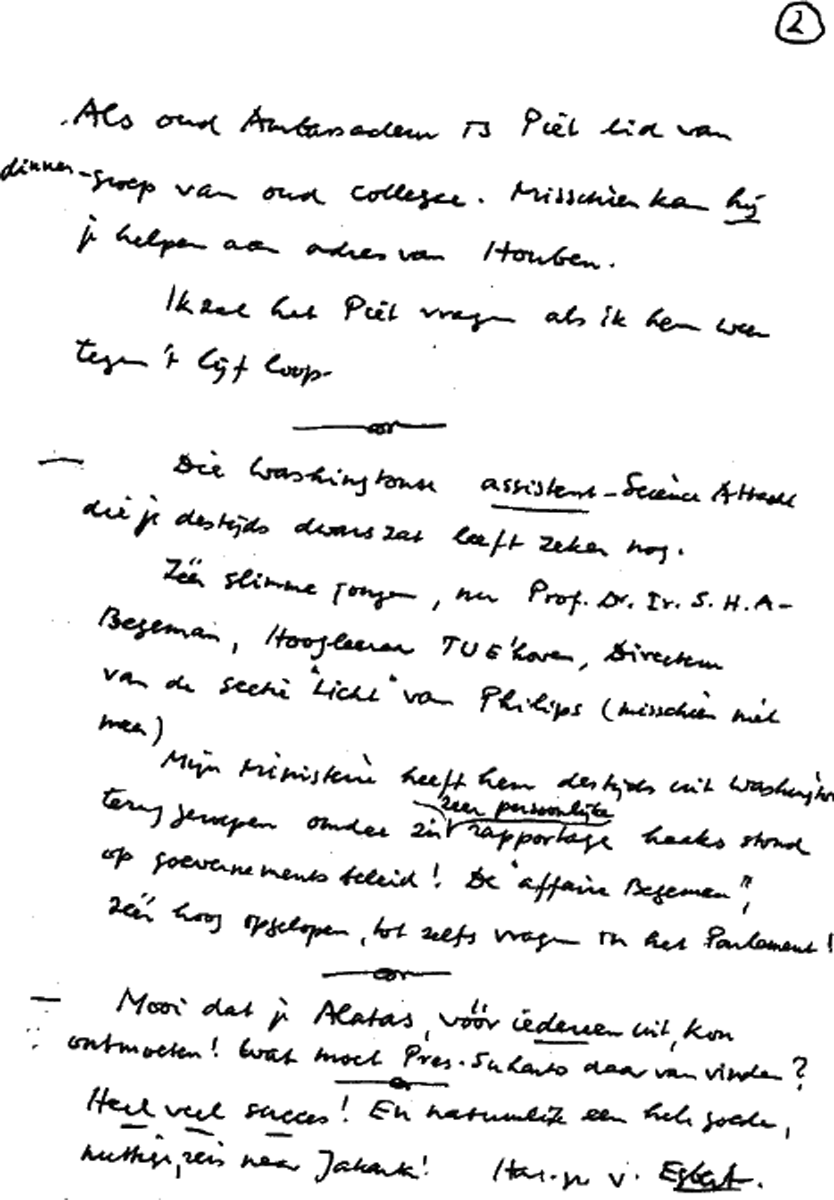 2
Als oud Ambassadeur is Piet lid van
dinner-groep van oud collegae. Misschien kan hij
je helpen aan adres van Houben.
Ik zal het Piet vragen als ik hem weer
tegen 't lijf loop.
— Die Washingtonse assistent-Science Attaché
die je destijds dwars zat leeft zeker nog.
Zéér slimme jongen, nu Prof. Dr. Ir. S.H.A.
Begeman, Hoogleraar TUE'hoven, Directeur
van de sectie "Licht" van Philips (misschien niet
meer)
Mijn Ministerie heeft hem destijds uit Washington
zeer persoonlijke
terug geroepen omdat zijn rapportage haaks stond
op goevernements beleid! De "affaire Begeman",
zéér hoog opgelopen, tot zelfs vragen in het Parlement!
— Mooi dat je Alatas, vóór iedereen uit, kon
ontmoeten! Wat moet Pres. Suharto daar van vinden?
Heel veel succes! En natuurlijk een hele goede,
nuttige, reis naar Jakarta! Har. gr. v. Egbert.